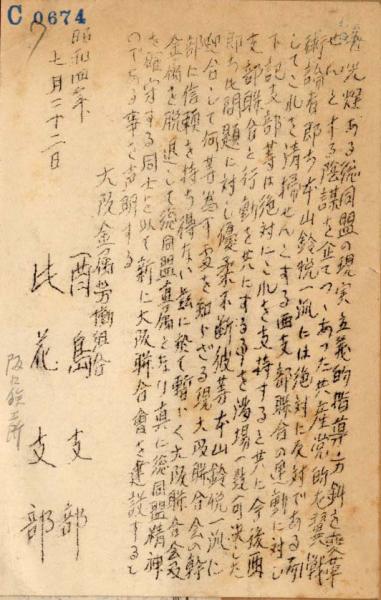 C 0674
光輝ある総同盟の現実主義的指導方針を変革
せんとする陰謀を企てつゝあった共産党的左翼戦
術論者即ち本山 一派には絶対に反対である而
してこれを清掃せんとする両支部聯合の運動に対し
下記支部等は絶対にこれを支持すると共に今後両
支部聯合と行動を共にする事を満場一致可決した
即ち此問題に対し優柔不断彼等本山 一派に
迎合して何等為す処を知らざる現大阪聯合会の幹
部に信頼を持ち得ない茲に於て暫く大阪聯合会及
金働を脱退して総同盟直属となり真に総同盟精神
を確守する同士を以て新に大阪聯合會を建設するも
のである事を声明する
大阪金 労働組合
酉島支部
此花支部
昭和四年
七月二十二日